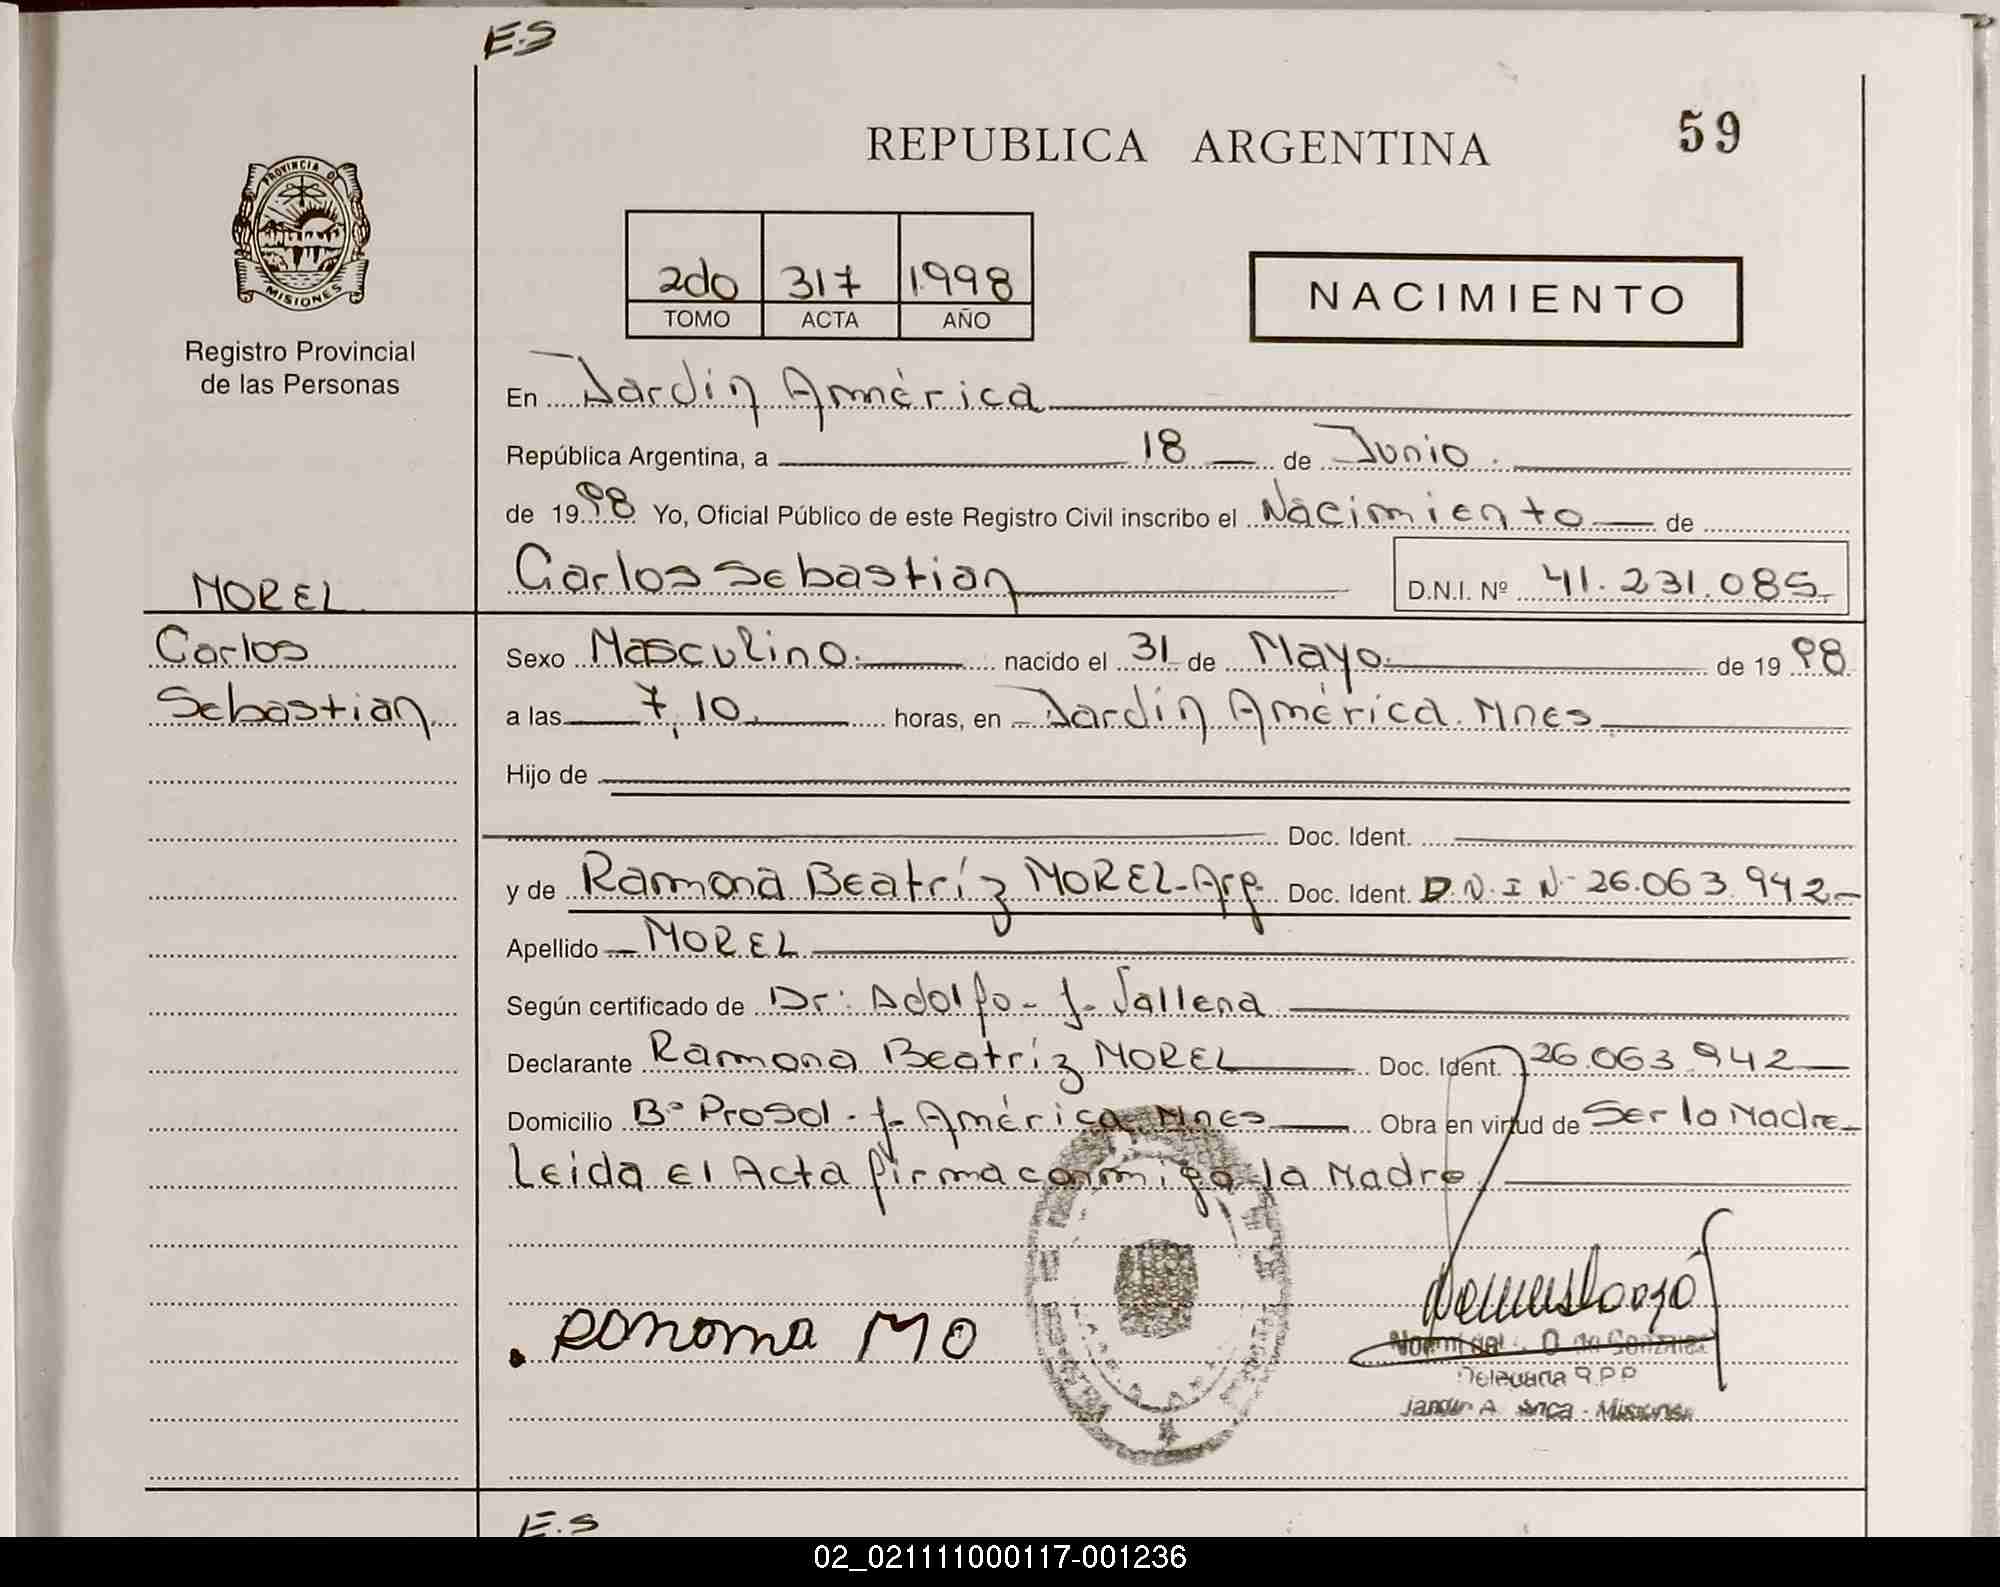 E.S
REPUBLICA ARGENTINA
59
PROVINCIA D
MISIONES
Registro Provincial
de las Personas
2do 317 1998
TOMO ACTA AÑO
NACIMIENTO
En Jardín América
República Argentina, a 18 de Junio.
de 1998 Yo, Oficial Público de este Registro Civil inscribo el Nacimiento de
Carlos Sebastian D.N.I. Nº 41.231.085
MOREL
Carlos
Sebastian
Sexo Masculino. nacido el 31 de Mayo. de 1998
a las 7,10 horas, en Jardín América. Mnes
Hijo de
Doc. Ident.
y de Ramona Beatríz MOREL-Arg. Doc. Ident. D.N.I N- 26.063.942-
Apellido MOREL
Según certificado de Dr: Adolfo- J-
Declarante Ramona Beatríz MOREL Doc. Ident. 26.063.942
Domicilio Bº ProSol - J- América Mnes Obra en virtud de Ser la Madre
Leida El Acta firma conmigo la Madre
Ramona MO
E.S
02_021111000117-001236